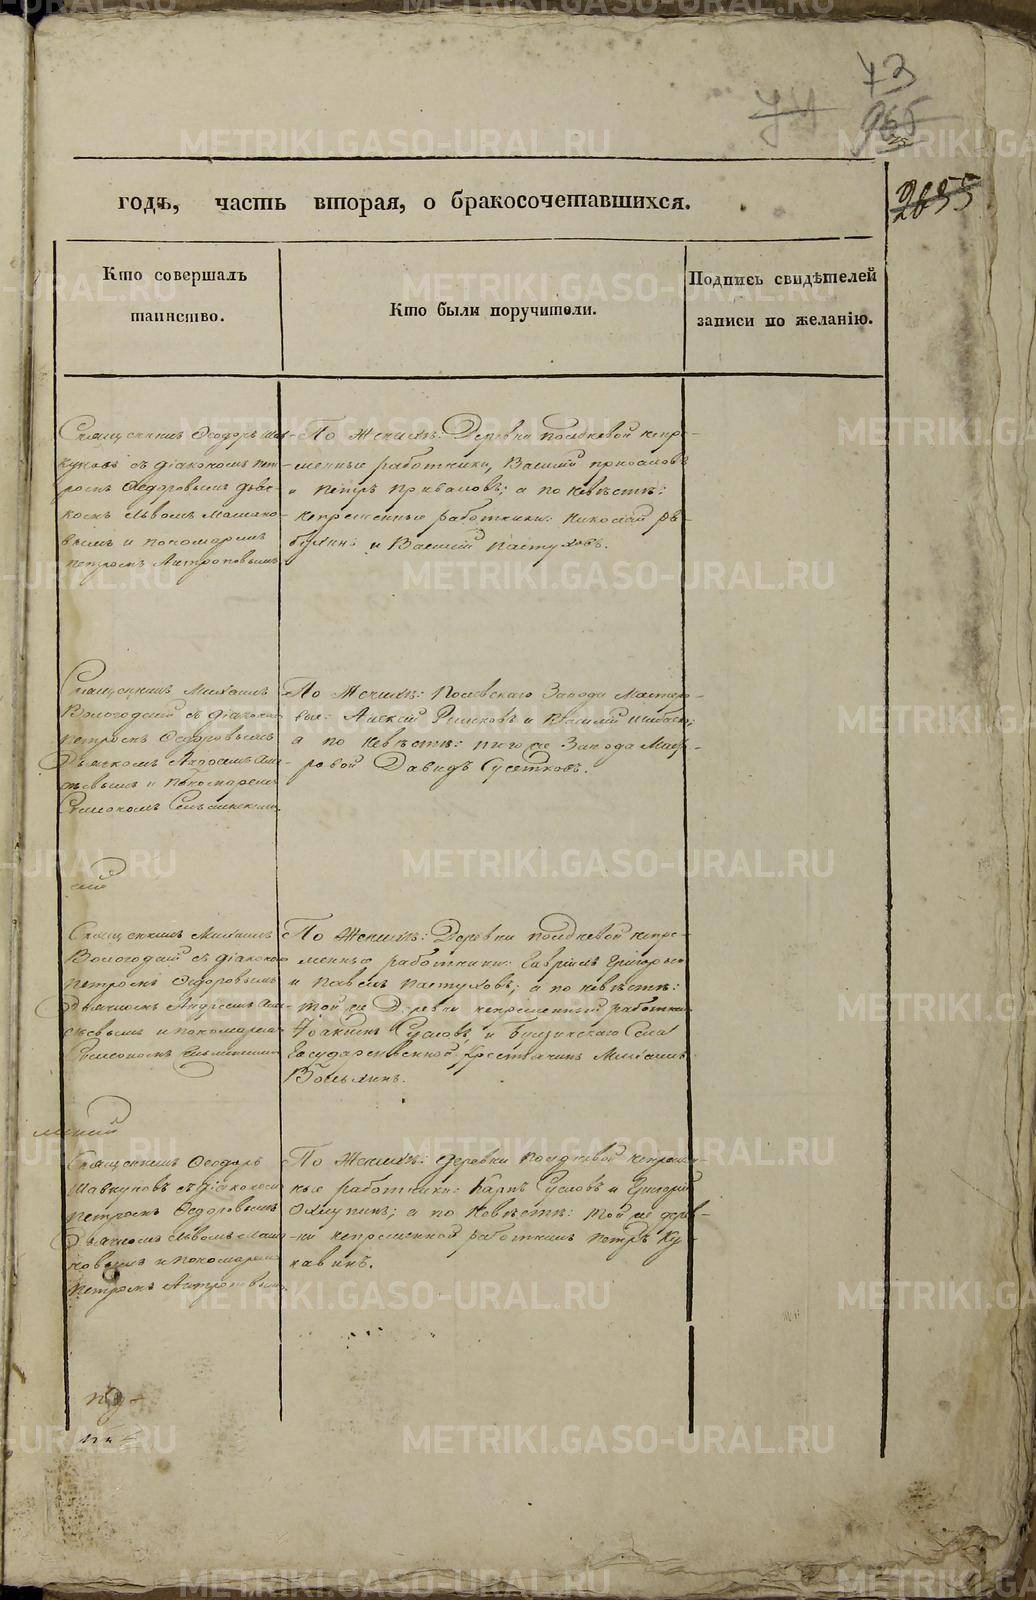 73
2655
годъ, часть вторая, о бракосочетавшихся.
Кто совершалъ
таинство.
Кто были поручители.
Подпись свидѣтелей
записи по желанію.
Священникъ Ѳеодоръ Шав-
куновъ съ діакономъ Пет-
ромъ Ѳедоровымъ дьяч-
комъ Львомъ Машано-
вымъ и пономаремъ
Петромъ Антроповымъ
По Женихѣ: Деревни Полдневой непре-
менные работники, Василий Приваловъ
и Петръ Приваловъ; а по невѣстѣ:
непременные работники: Николай Ря-
бухинъ и Василий Пастуховъ.
Священникъ Михаилъ
Вологодский съ діакономъ
Петромъ Ѳедоровымъ
Дьячкомъ Андреемъ Але-
ѣевымъ и Пономаремъ
Симеономъ
По Женихѣ: Полевскаго Завода Мастеро-
вые: Алексѣй и Василий
а по невѣстѣ: того же Завода Масте-
ровой Давидъ Гусетковъ.
Священникъ Михаилъ
Вологодский съ діакономъ
Петромъ Ѳедоровымъ
Дьячкомъ Андреемъ Але-
сѣевымъ и пономаремъ
Симеономъ
По Женихѣ: Деревни Полдневой непре-
менные работники: Гавриилъ Григорьев
и Павелъ Пастуховъ; а по невѣстѣ:
той же Деревни непременный работникъ
Иоакимъ Сусловъ, и Села
Государственной Крестьянинъ Михаилъ
Священникъ Ѳеодоръ
Шавкуновъ съ діакономъ
Петромъ Ѳедоровымъ
Дьячкомъ Львомъ Маша-
новымъ и пономаремъ
Петромъ Антроповымъ.
По Женихѣ: деревни Полдневой непремен-
ные работники: Карпъ Сусловъ и Григорий
а по Невѣстѣ: той же дерев-
ни непременной работникъ Петръ Ку-
кавинъ.
METRIKI.GASO-URAL.RU